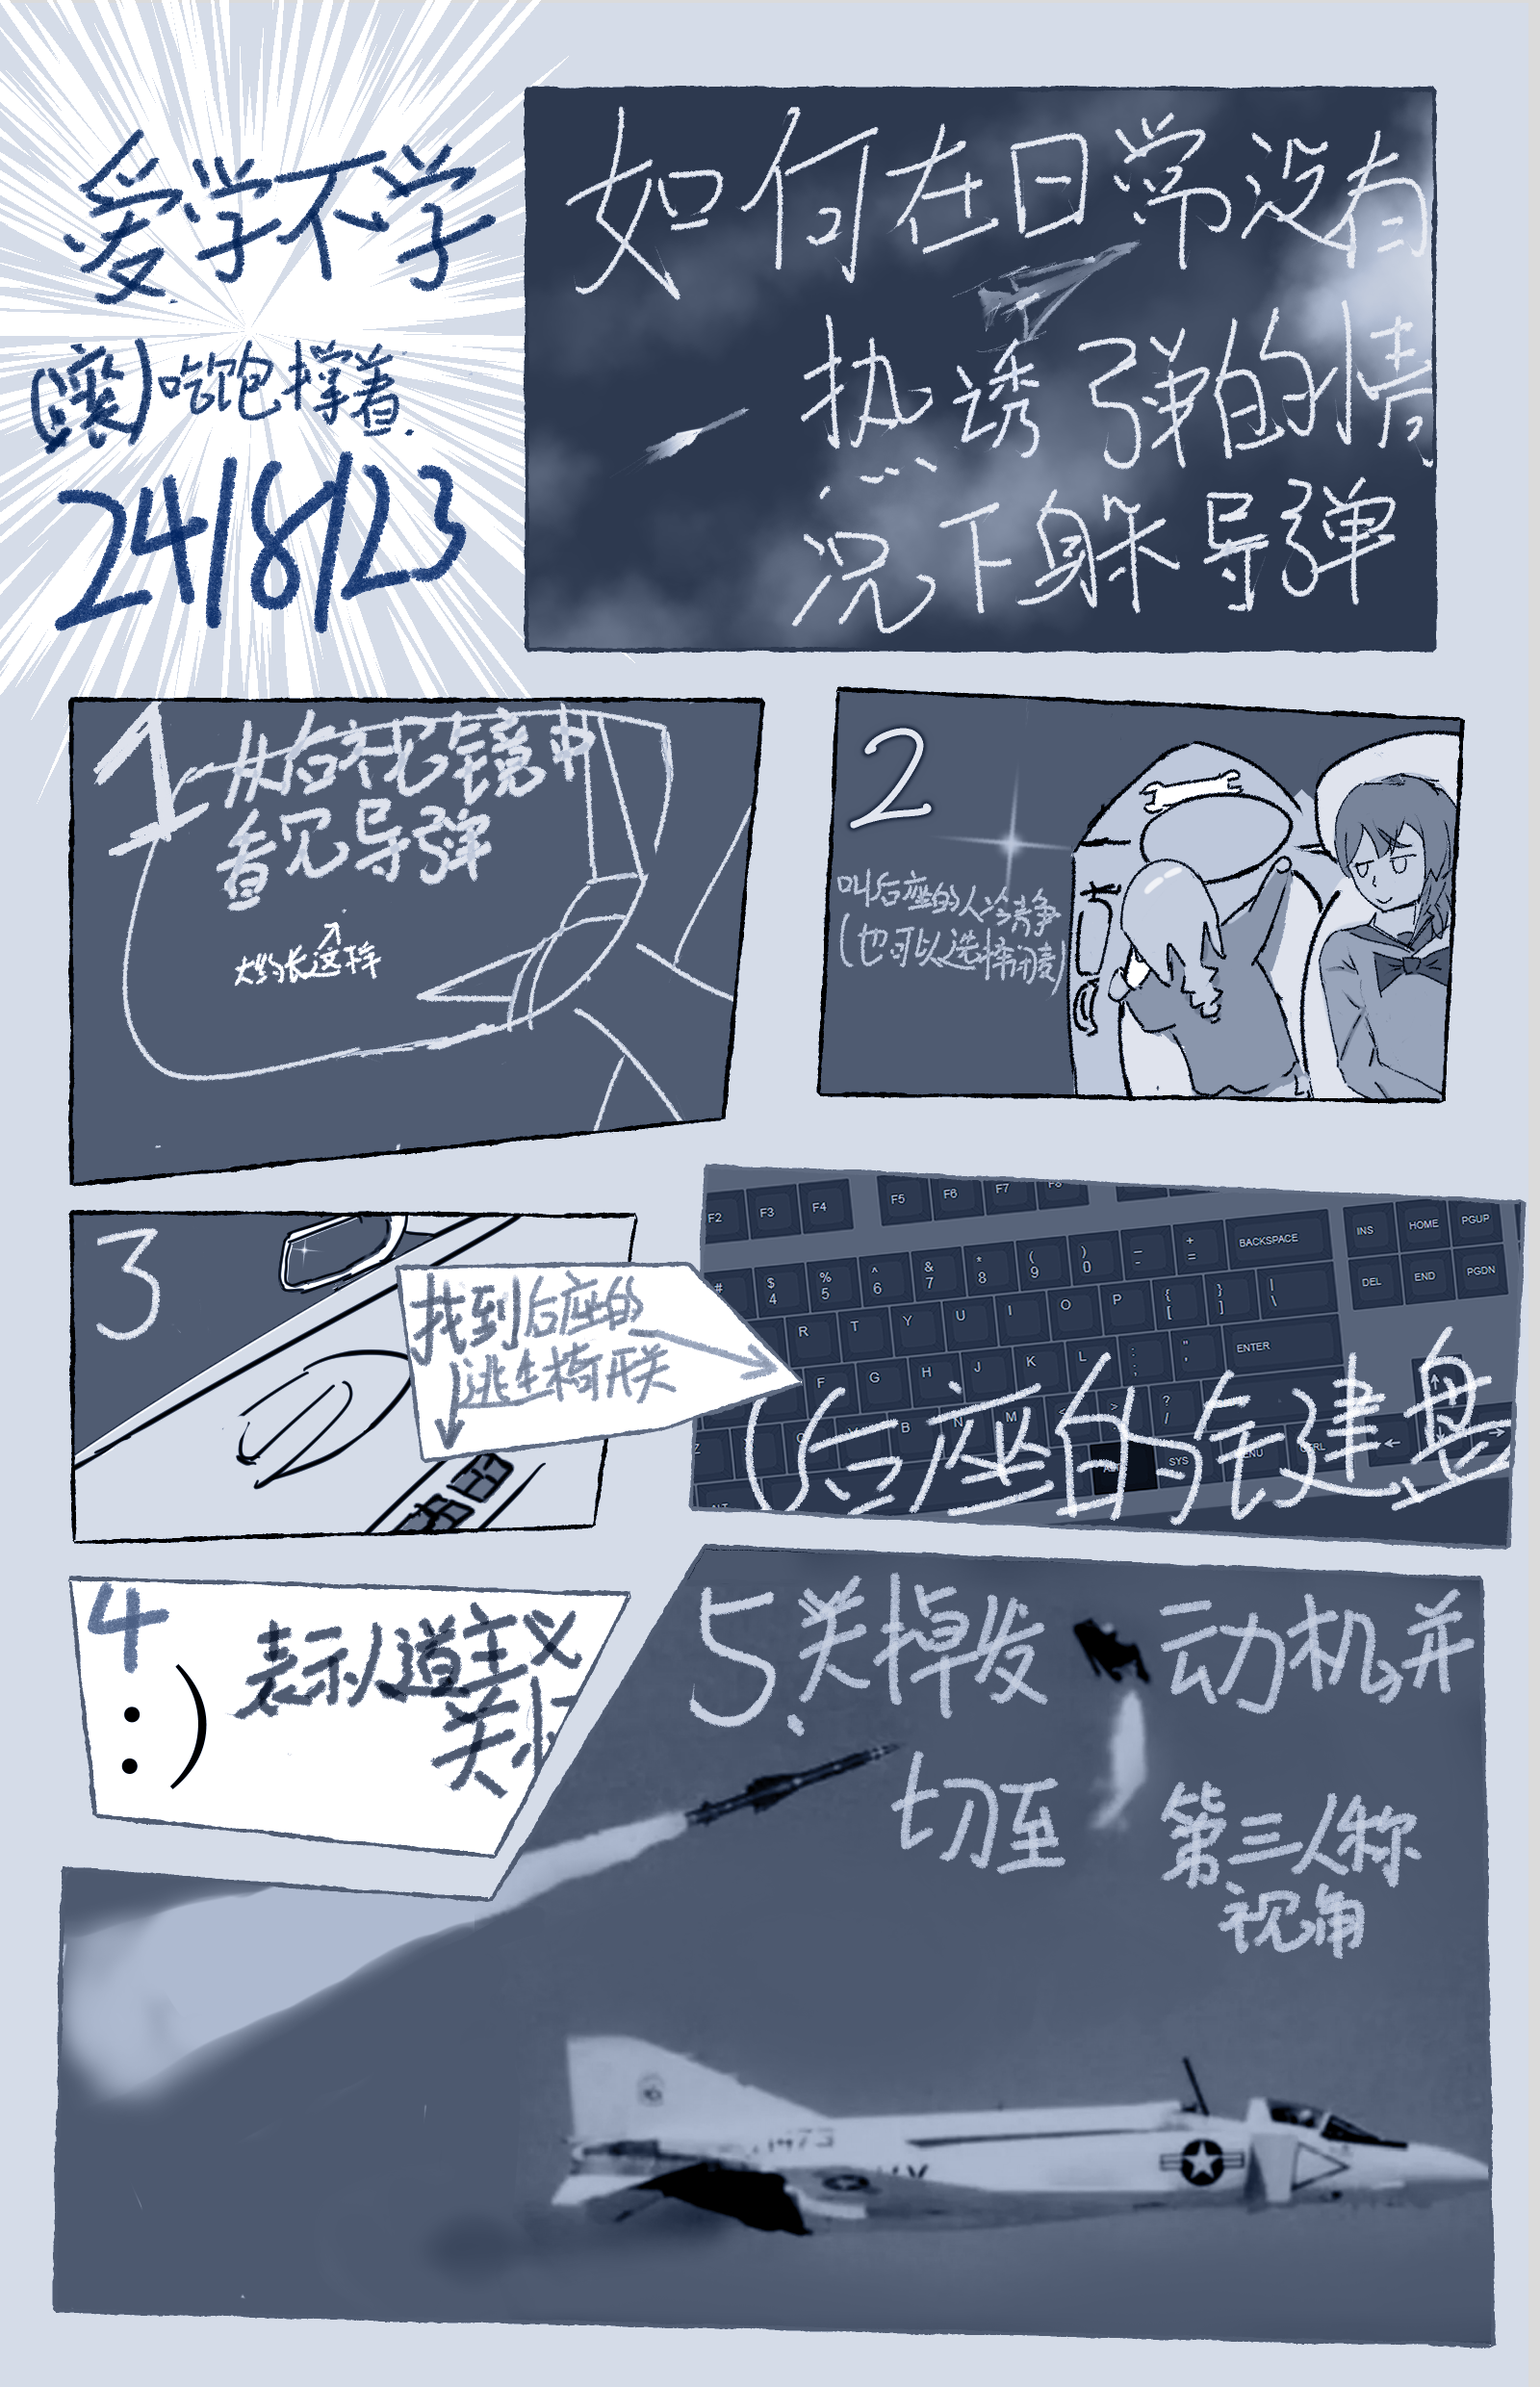 爱学不学
吃饱撑着
24/8/23
如何在日常没有
热诱弹的情
况下躲导弹
1
从后视镜中
看见导弹
大约长这样
2
叫后座的人冷静
(也可以选择闭麦)
3
找到后座的
逃生椅开关
F2 F3 F4 F5 F6 F7 F8
# $ 4 % 5 ^ 6 & 7 * 8 ( 9 ) 0 _ - + = BACKSPACE INS HOME PGUP
R T Y U I O P { [ } ] | \ DEL END PGDN
F G H J K L : ; " ' ENTER
B N M < > ? /
SYS
(后座的
盘
4
:)
表示人道主义
关怀
5.关掉发动机并
切至第三人称
视角